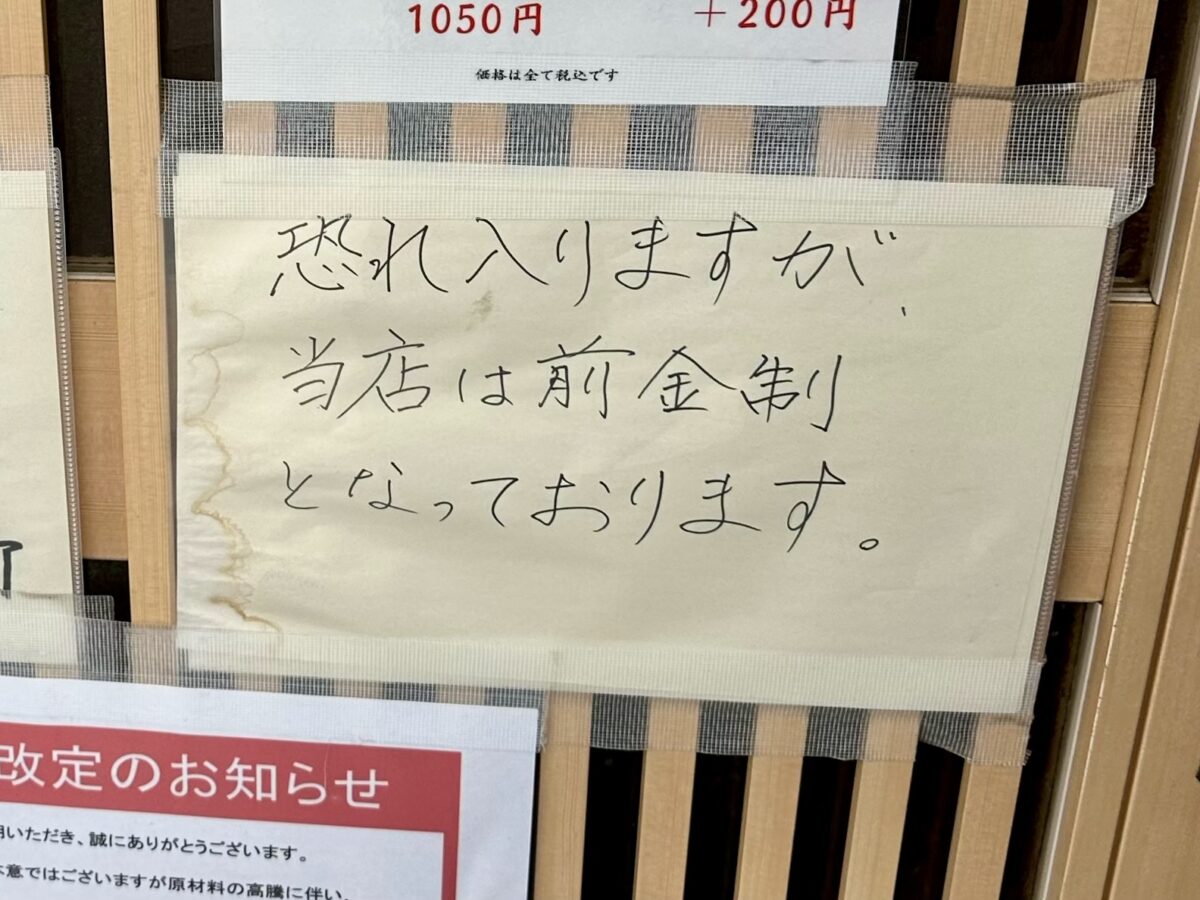 1050円 +200円
価格は全て税込です
恐れ入りますが、
当店は前金制
となっております。
改定のお知らせ
用いただき、誠にありがとうございます。
意ではございますが原材料の高騰に伴い、